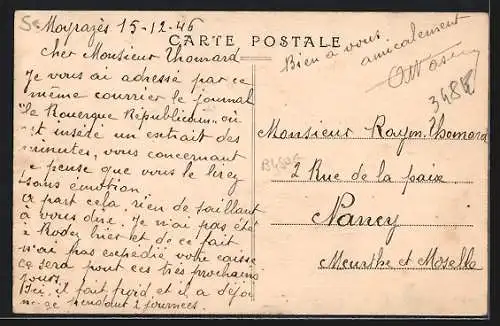 Moyrazès 15-12-46
CARTE POSTALE
cher Monsieur Thomard
Je vous ai adressé par ce
même courrier le journal
"le Rouergue Républicain" où
est inséré un extrait des
minutes, vous concernant
je pense que vous le lirez
sans émotion.
A part cela rien de saillant
à vous dire. Je n'ai pas été
à Rodez hier et de ce fait
n'ai pas expédié votre caisse
ce sera pour ces très prochains
jours.
Ici, il fait froid et il a déjà
neigé pendant 2 journées.
Bien à vous
amicalement
3488
Monsieur Raym. Thomard
B4806
2 Rue de la paix
Nancy
Meurthe et Moselle